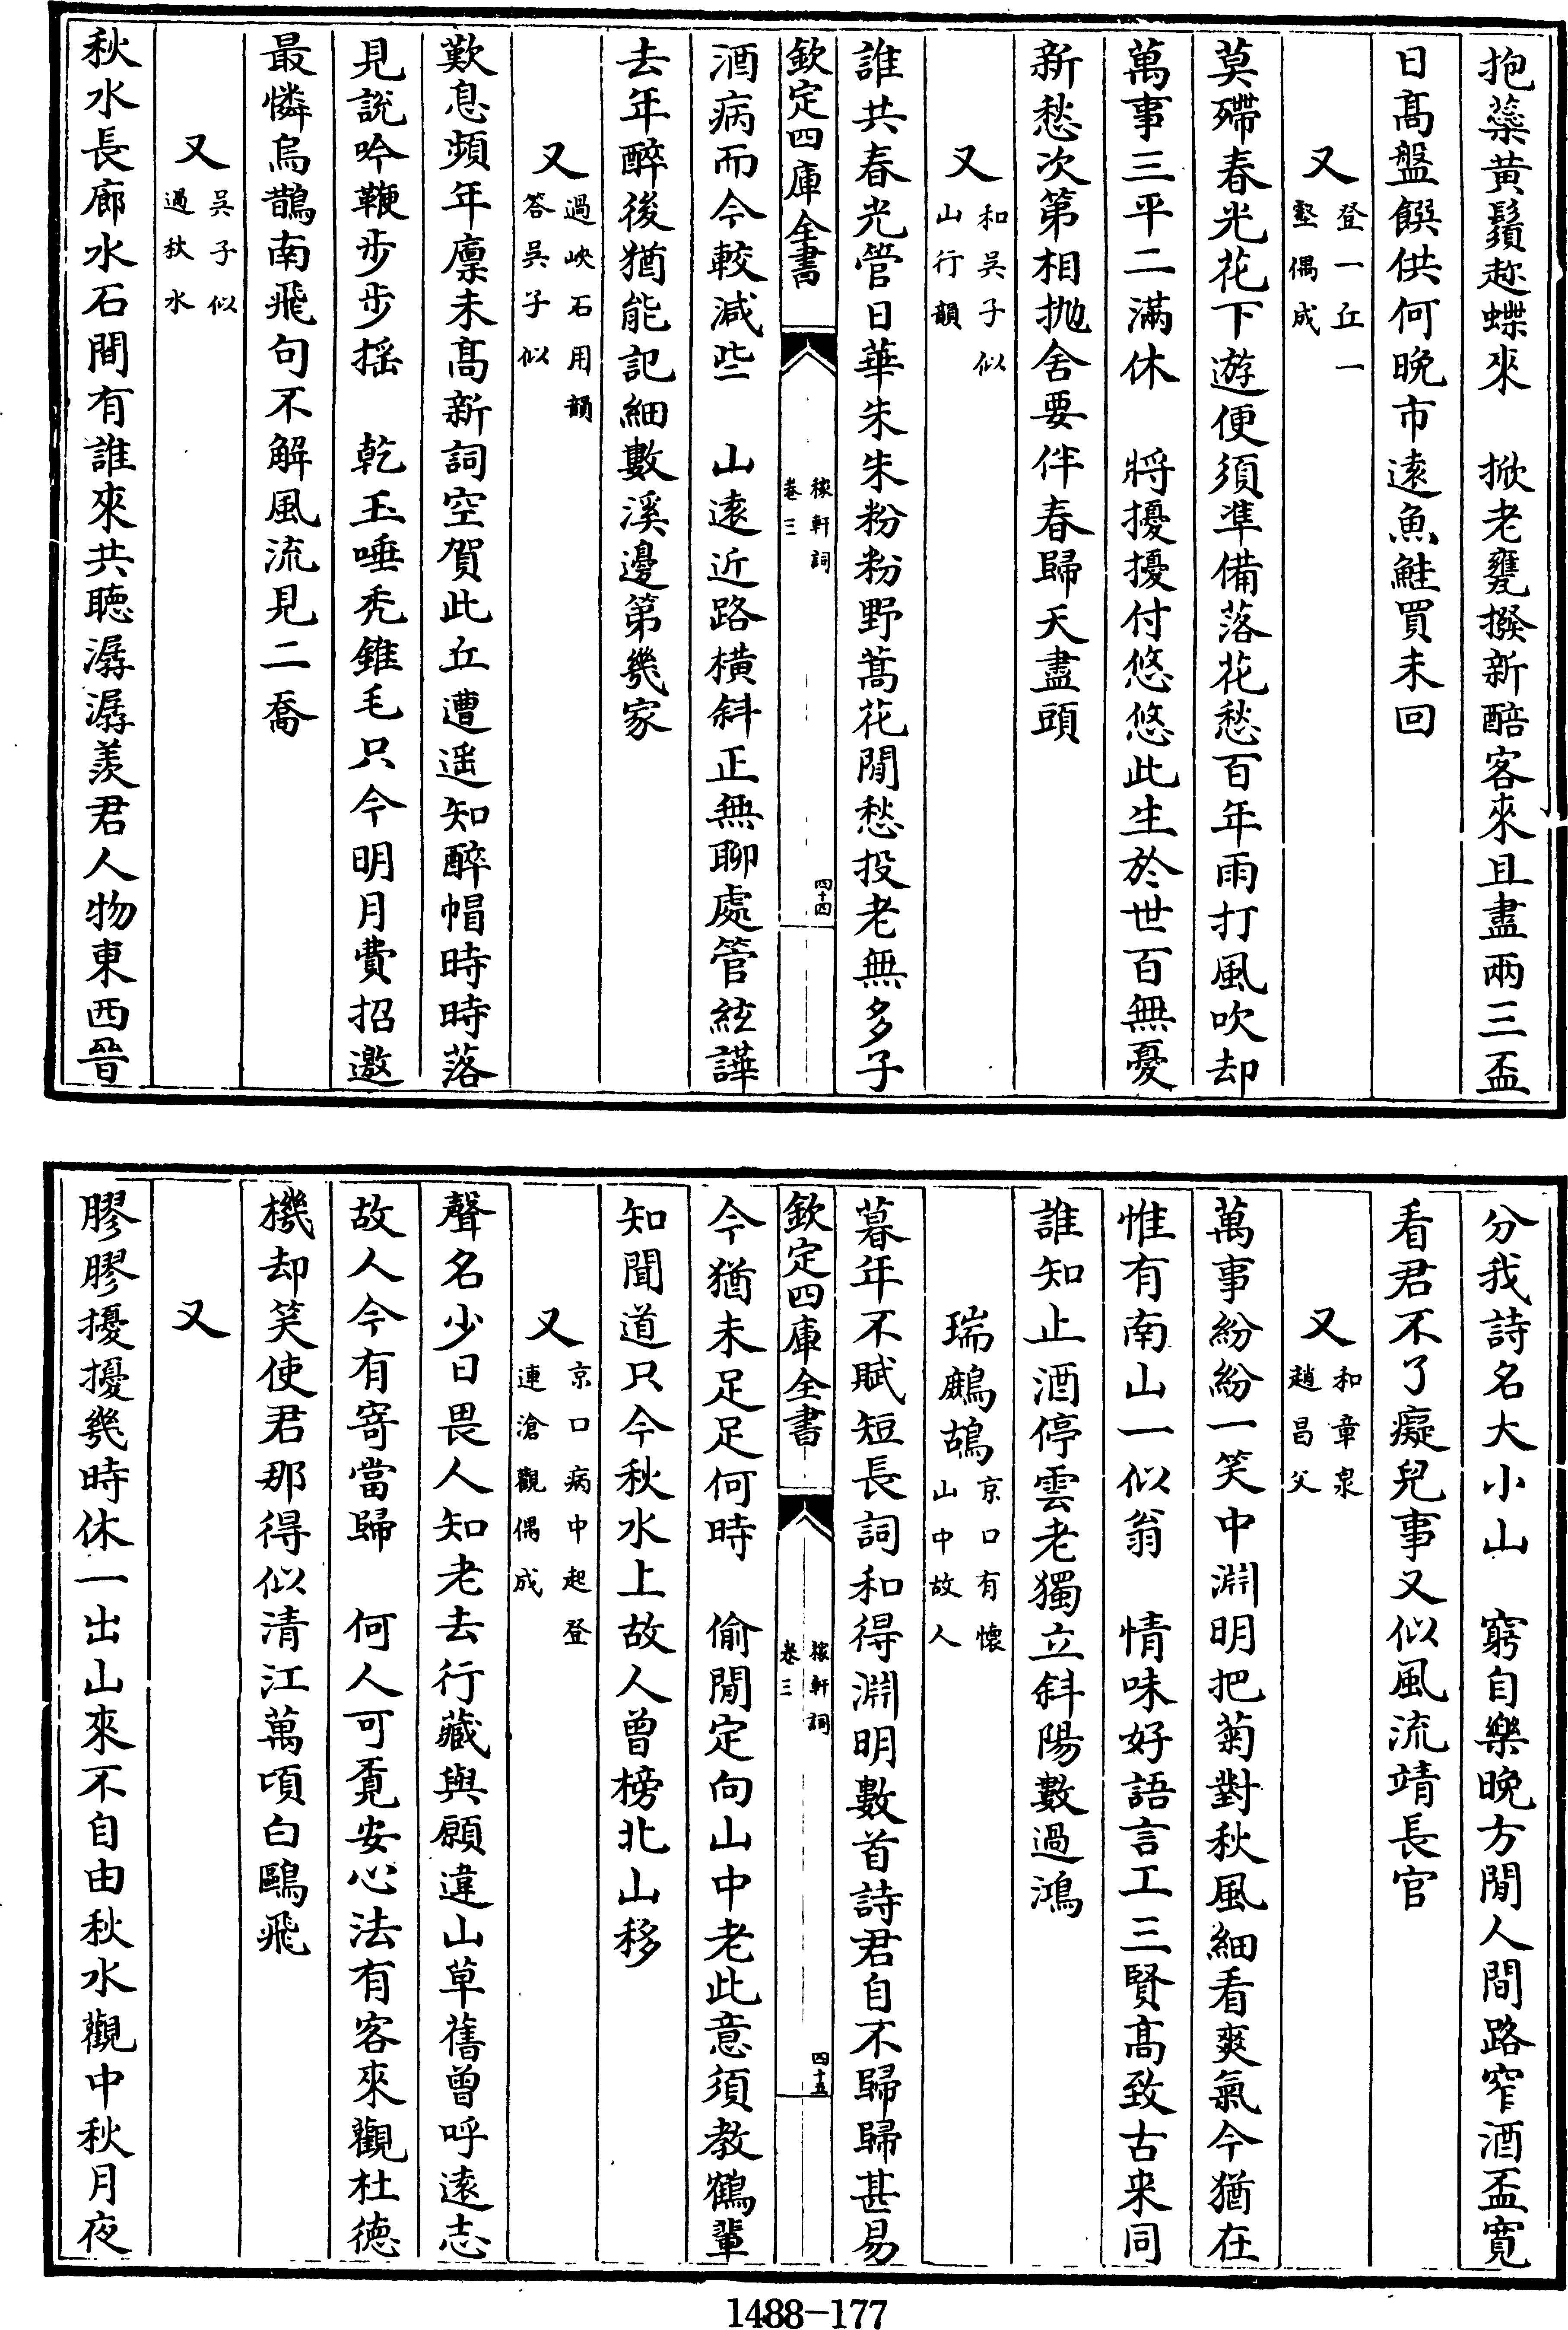 抱蘂黄鬚趂蝶來　掀老甕撥新醅客來且盡兩三盃
日髙盤饌供何晚市逺魚鮭買未回
又登一丘一
壑偶成
莫殢春光花下遊便須凖備落花愁百年雨打風吹却
萬事三平二滿休　將擾擾付悠悠此生於世百無憂
新愁次第相抛舍要伴春歸天盡頭
又和吳子似
山行韻
誰共春光管日華朱朱粉粉野蒿花閒愁投老無多子
欽定四庫全書
稼軒詞
卷三
四十四
酒病而今較减些　山逺近路橫斜正無聊處管絃譁
去年醉後猶能記細數溪邊第幾家
又過峽石用韻
答吳子似
歎息頻年廪未髙新詞空賀此丘遭遥知醉帽時時落
見說吟鞭步步揺　乾玉唾秃錐毛只今明月費招邀
最憐烏鵲南飛句不解風流見二喬
又吳子似
過秋水
秋水長廊水石間有誰來共聴潺潺羡君人物東西晉
分我詩名大小山　窮自樂晚方閒人間路窄酒盃寛
看君不了癡兒事又似風流靖長官
又和章泉
趙昌父
萬事紛紛一笑中淵明把菊對秋風細看爽氣今猶在
惟有南山一似翁　情味好語言工三賢髙致古來同
誰知止酒停雲老獨立斜陽數過鴻
瑞鷓鴣京口有懷
山中故人
暮年不賦短長詞和得淵明數首詩君自不歸歸甚易
欽定四庫全書
稼軒詞
卷三
四十五
今猶未足足何時　偷閒定向山中老此意須教鶴輩
知聞道只今秋水上故人曾榜北山移
又京口病中起登
連滄觀偶成
聲名少日畏人知老去行藏與願違山草舊曾呼逺志
故人今有寄當歸　何人可覔安心法有客來觀杜德
機却笑使君那得似清江萬頃白鷗飛
又
膠膠擾擾幾時休一出山來不自由秋水觀中秋月夜
1488-177